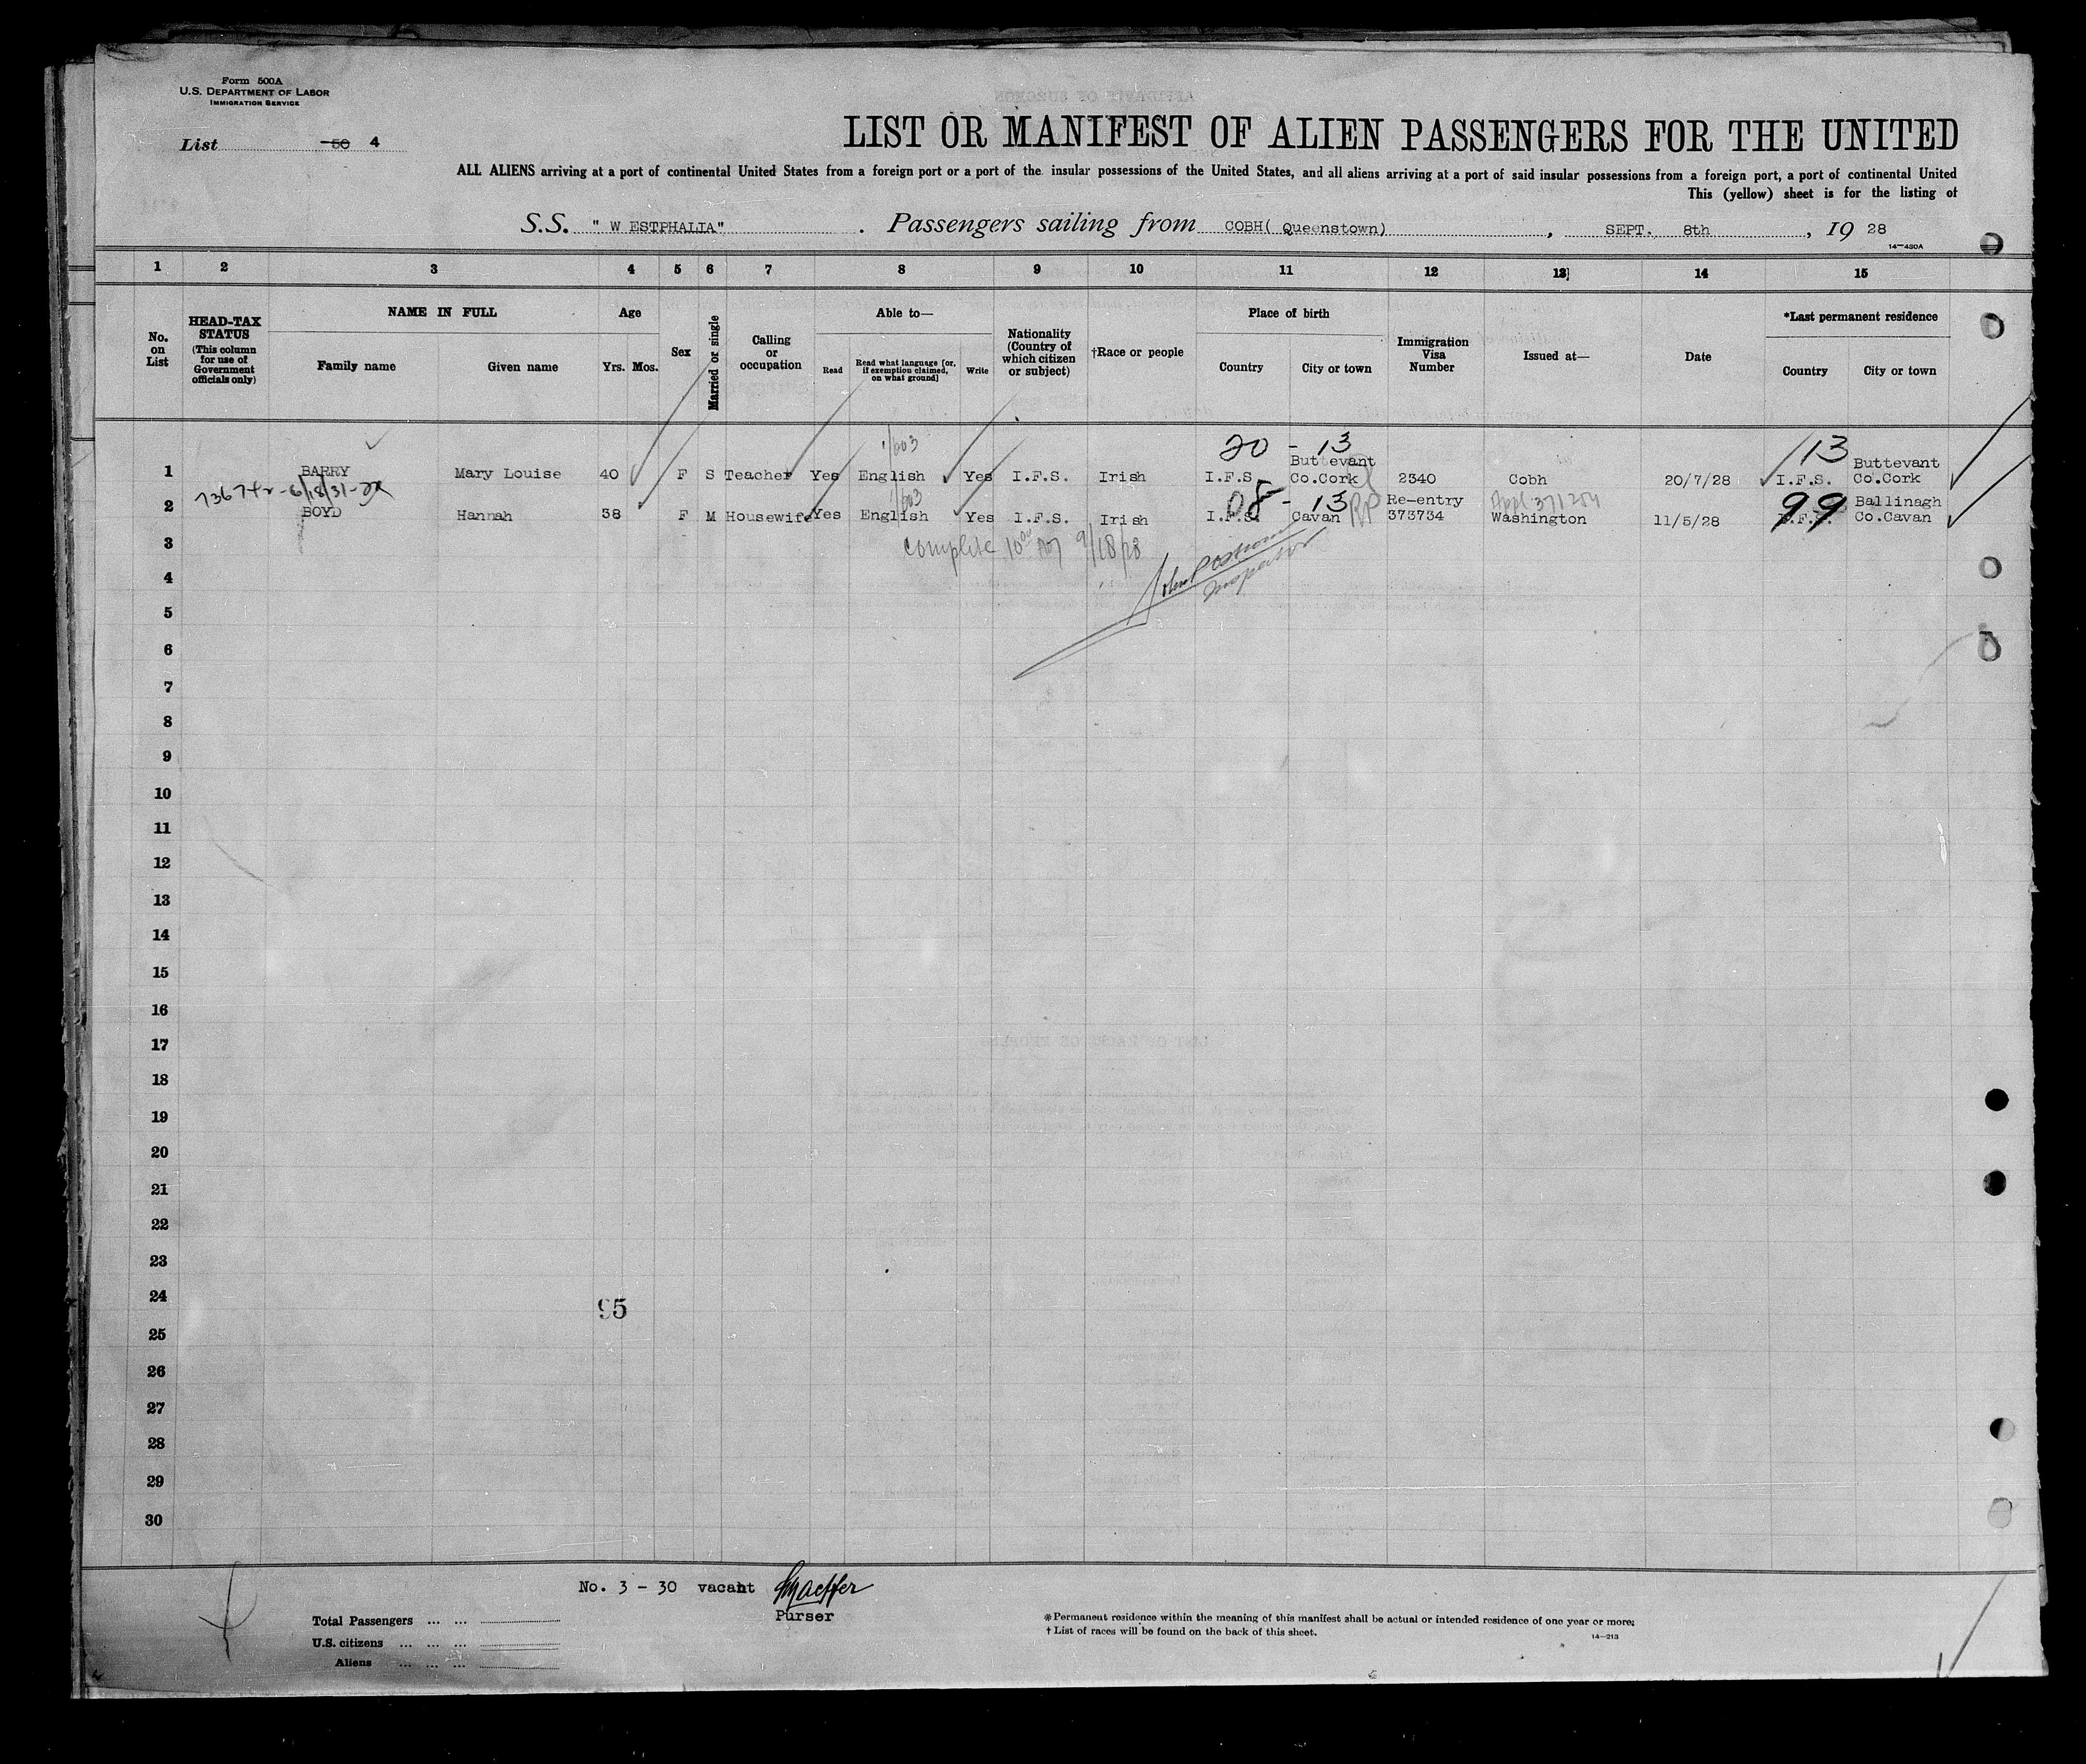 Form 500A
U.S. DEPARTMENT OF LABOR
IMMIGRATION SERVICE
List 50 4
LIST OR MANIFEST OF ALIEN PASSENGERS FOR THE UNITED
ALL ALIENS arriving at a port of continental United States from a foreign port or a port of the insular possessions of the United States, and all aliens arriving at a port of said insular possessions from a foreign port, a port of continental United
This (yellow) sheet is for the listing of
S.S. " W ESTPHALIA" . Passengers sailing from COBH( Queenstown) , SEPT. 8th , 19 28
14—430A
1 2 3 4 5 6 7 8 9 10 11 12 13 14 15
No. on List
HEAD-TAX STATUS
(This column for use of Government officials only)
NAME IN FULL
Family name Given name
Age
Yrs. Mos.
Sex
Married or single
Calling or occupation
Able to—
Read
Read what language [or, if exemption claimed, on what ground]
Write
Nationality (Country of which citizen or subject)
†Race or people
Place of birth
Country City or town
Immigration Visa Number
Issued at—
Date
*Last permanent residence
Country City or town
1/603 20 - 13 13
1 BARRY Mary Louise 40 F S Teacher Yes English Yes I.F.S. Irish I.F.S. Buttevant Co.Cork 2340 Cobh 20/7/28 I.F.S. Buttevant Co.Cork
6/18/31
08 - 13 RP Appl. 371254 99
2 BOYD Hannah 38 F M Housewife Yes English Yes I.F.S. Irish I.F.S. Cavan Re-entry 373734 Washington 11/5/28 I.F.S. Ballinagh Co.Cavan
3 Complete 9/18/28
Inspector
4
5
6
7
8
9
10
11
12
13
14
15
16
17
18
19
20
21
22
23
24
95
25
26
27
28
29
30
No. 3 - 30 vacant
Purser
Total Passengers ... ...
U.S. citizens ... ... ...
Aliens ... ... ...
*Permanent residence within the meaning of this manifest shall be actual or intended residence of one year or more.
† List of races will be found on the back of this sheet.
14—213